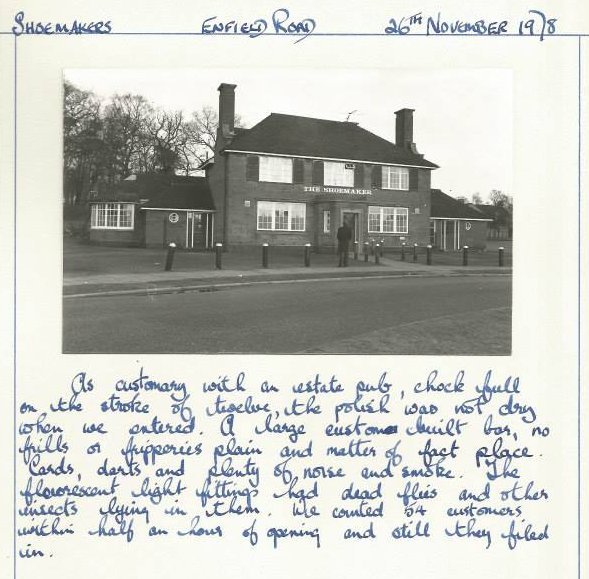 SHOEMAKERS ENFIELD ROAD 26TH NOVEMBER 1978
THE SHOEMAKER
As customary with an estate pub, chock full
on the stroke of twelve, the polish was not dry
when we entered. A large custome built bar, no
frills or fripperies plain and matter of fact place.
Cards, darts and plenty of noise and smoke. The
flourescent light fittings had dead flies and other
insects lying in them. We counted 54 customers
within half an hour of opening and still they filed
in.